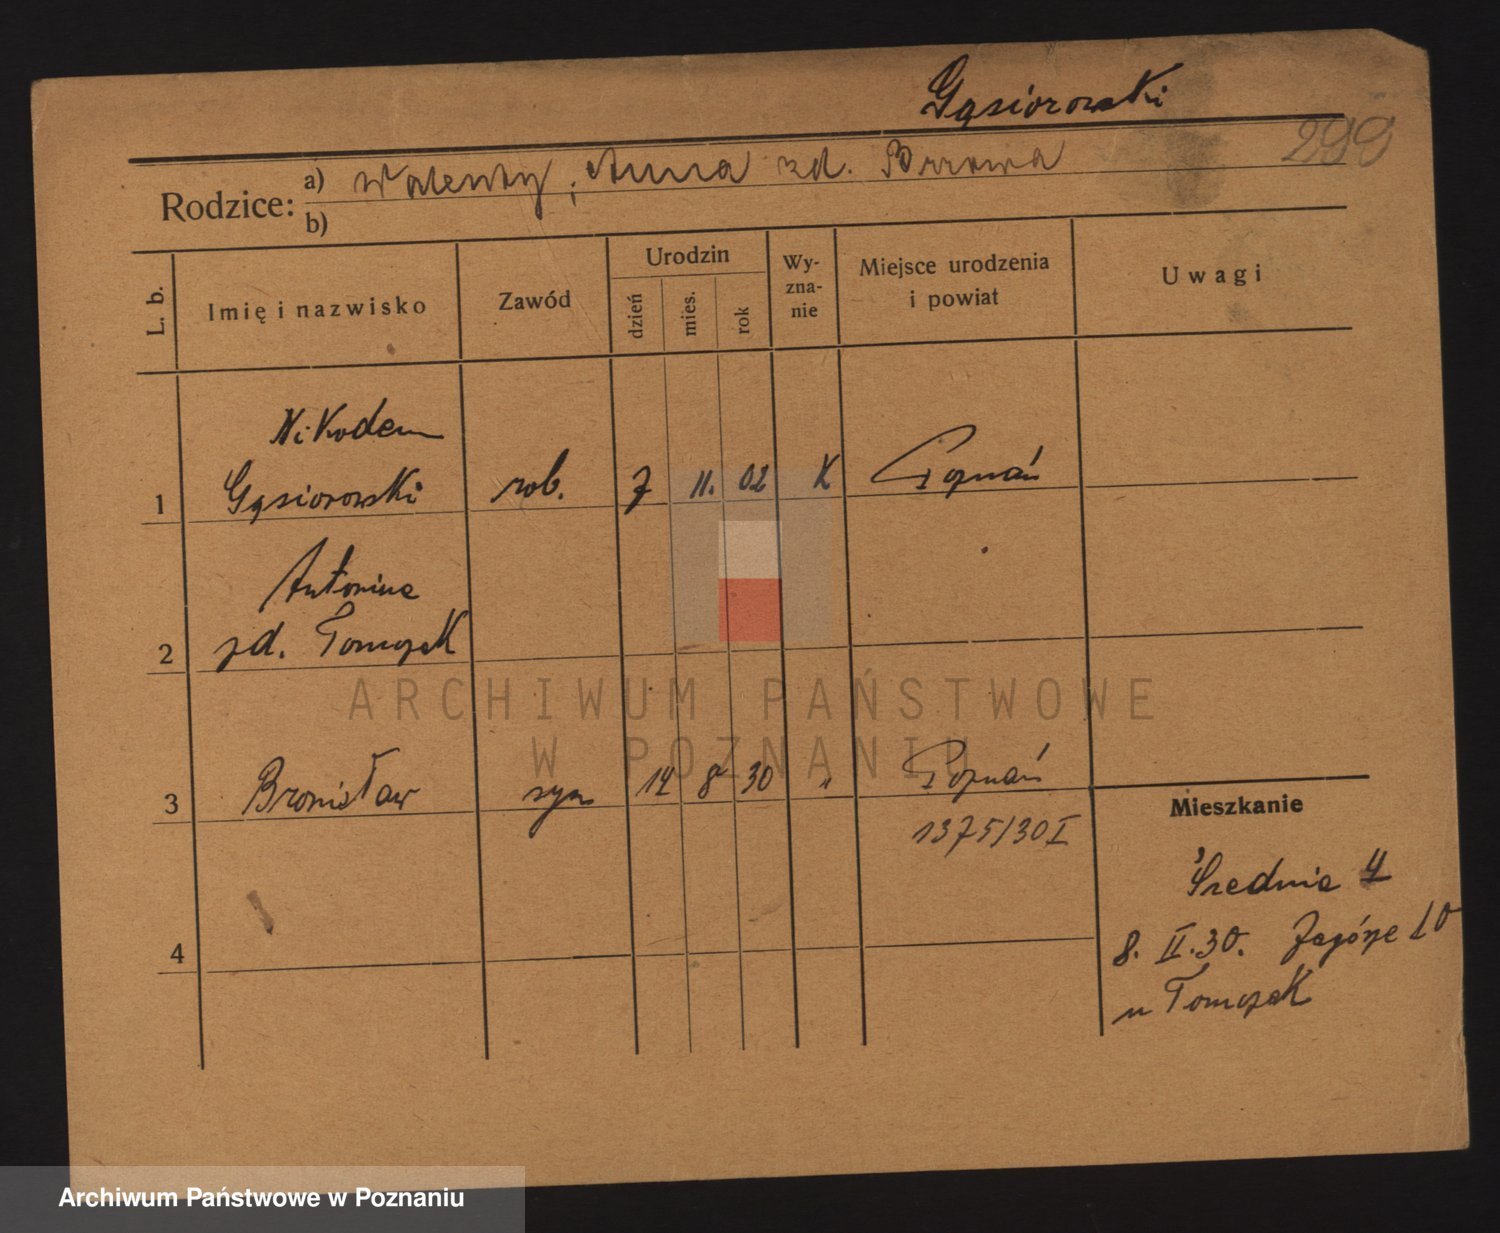 Gąsiorowski
299
Rodzice:
a) Walenty, Anna zd.
b)
L. b.
Imię i nazwisko
Zawód
Urodzin
dzień
mies.
rok
Wy-
zna-
nie
Miejsce urodzenia
i powiat
Uwagi
Nikodem
1 Gąsiorowski rob. 7 11. 02 K Poznań
Antonina
2 zd. Tomczak
3 Bronisław syn 14 8 30 " Poznań
1375/30 I
Mieszkanie
Średnia 4
8. II. 30. Zagórze 10
u Tomczak
4
ARCHIWUM PAŃSTWOWE
W POZNANIU
Archiwum Państwowe w Poznaniu